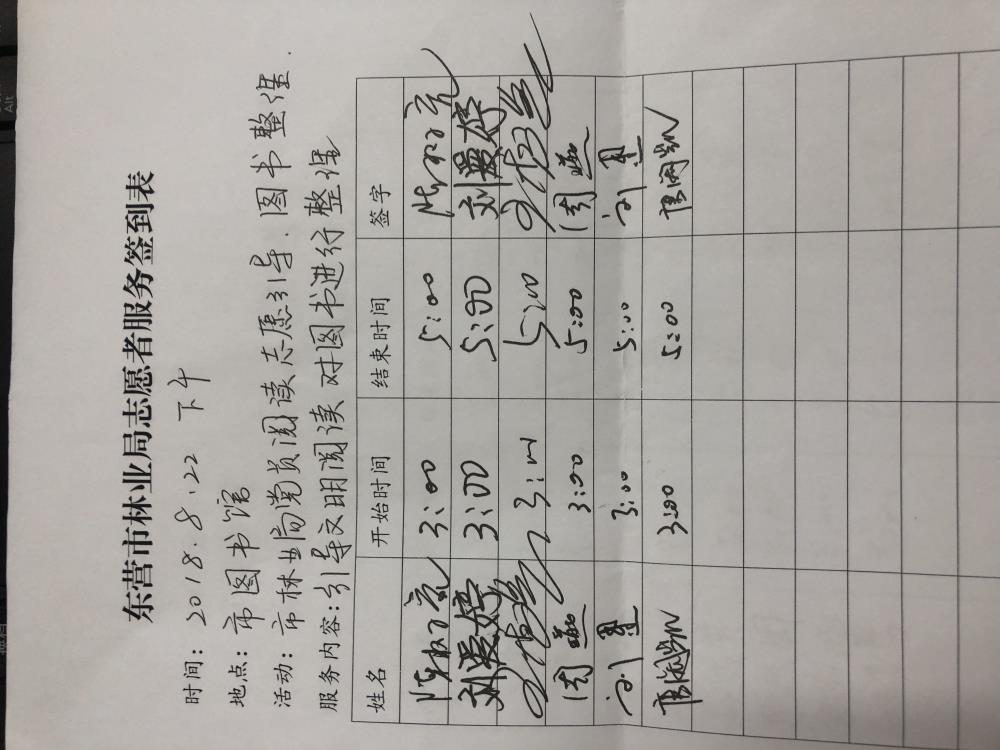 东营市林业局志愿者服务签到表
时间: 2018.8.22 下午
地点: 市图书馆
活动: 市林业局党员阅读志愿引导.图书整理.
服务内容:引导文明阅读 对图书进行整理
姓名 开始时间 结束时间 签字
3:00 5:00
刘爱婷 3:00 5:00 刘爱婷
3:00 5:00
周燕 3:00 5:00 周燕
刘星 3:00 5:00 刘星
3:00 5:00